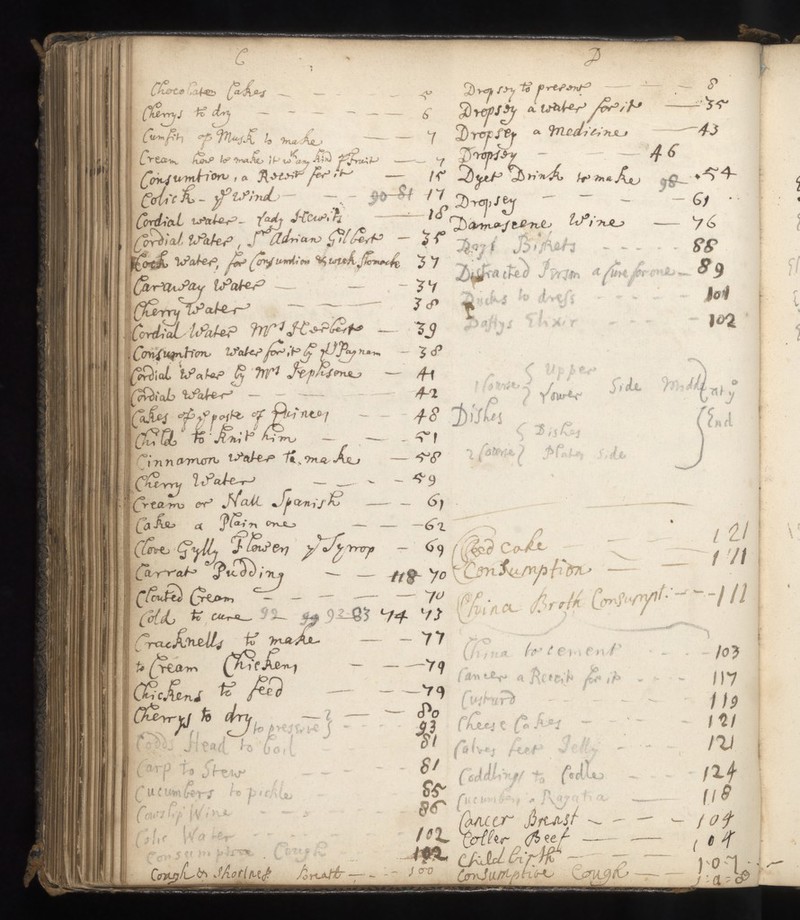 C
Chocolate Cakes - - - - 5
Cherrys to dry - - - - - 6
Cumfits of Musk to make - - 7
Cream how to make it wth any kind of fruit - 7
Consumtion, a Receit for it - 15
Colick - ye Wind - - 90 81 17
Cordial water - Lady Hewits - 18
Cordial Water, Sr Adrian Gilbert - 35
Cock Water, for Consumtion & weak Stomack 37
Carraway Water - - - 37
Cherry Water - - - 38
Cordial Water Mrs Herberts - 39
Consumtion Water for it by 38
Cordial Water by Mrs Jephsone - 41
Cordial Water - - - 42
Cakes of ye paste of Quinces - - - 48
Child to knit him - - - 51
Cinnamon Water to make - 58
Cherry Water - - - 59
Cream or Nall Spanish - - 61
Cake a Plain one - - - 62
Clove Gylly Flowers ye Syrrop - 69
Carrat Pudding - - 118 70
Clouted Cream - - - - 70
Cold to cure 92 - 99 93 - 83 74 73
Cracknells to make - - 77
to Cream Chickens - - - 79
Chickens to feed - - - 79
Cherrys to dry - - 80
to preserve - - - 93
Codds Head to boil 81
Carp to Stew - - - - 81
Cucumbers to pickle 85
Cowslip Wine - - - 86
Colic Water - - - - 102
Consumptive Cough - - - 102
Cough & Shortness Breath - - - 100
D
Dropsey to prevent - - - 8
Dropsey a water for it - 35
Dropsey a Medicine - 43
Dropsey - - 46
Dyet Drink to make 98 - 54
Dropsey - - - 61
Damascene Wine - 76
Biskets - - - - - 88
Distracted Person a Cure for one - 89
Ducks to dress - - - - - 101
Daffys Elixir - - - - 102
1 Course { Upper
Lower Side Middle
Dishes
2 Course { Dishes
Plates Side
End
Seed Cake - - - 121
Consumption - - 111
China Broth Consumpt: - - 111
China to cement - - - - 103
Cancer a Receit for it - - - 117
Custurd - - - - 119
Cheese Cakes - - - 121
Calves feet Jelly - - - - 121
Coddlings to Codle - - - - 124
Cucumbers a - 118
Cancer Breast - - - - 104
Coller Beef - - 104
Child birth - - - 107
Consumptive Cough - -